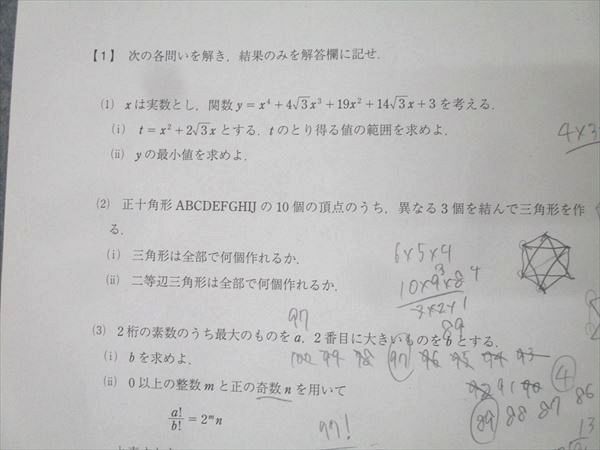 【1】 次の各問いを解き，結果のみを解答欄に記せ．
(1) xは実数とし，関数 y = x⁴ + 4√3x³ + 19x² + 14√3x + 3 を考える．
(i) t = x² + 2√3x とする．tのとり得る値の範囲を求めよ．
4×3
(ii) yの最小値を求めよ．
(2) 正十角形 ABCDEFGHIJ の 10 個の頂点のうち，異なる 3 個を結んで三角形を作
る．
6×5×4
(i) 三角形は全部で何個作れるか．
(ii) 二等辺三角形は全部で何個作れるか．
10×9×8
3 4
3×2×1
97
89
(3) 2桁の素数のうち最大のものをa，2番目に大きいものをbとする．
(i) bを求めよ．
100 99 98 97 96 95 94 93
92 91 90
④
(ii) 0以上の整数mと正の奇数nを用いて
89 88 87 86
a!/b! = 2ᵐn
97!
13